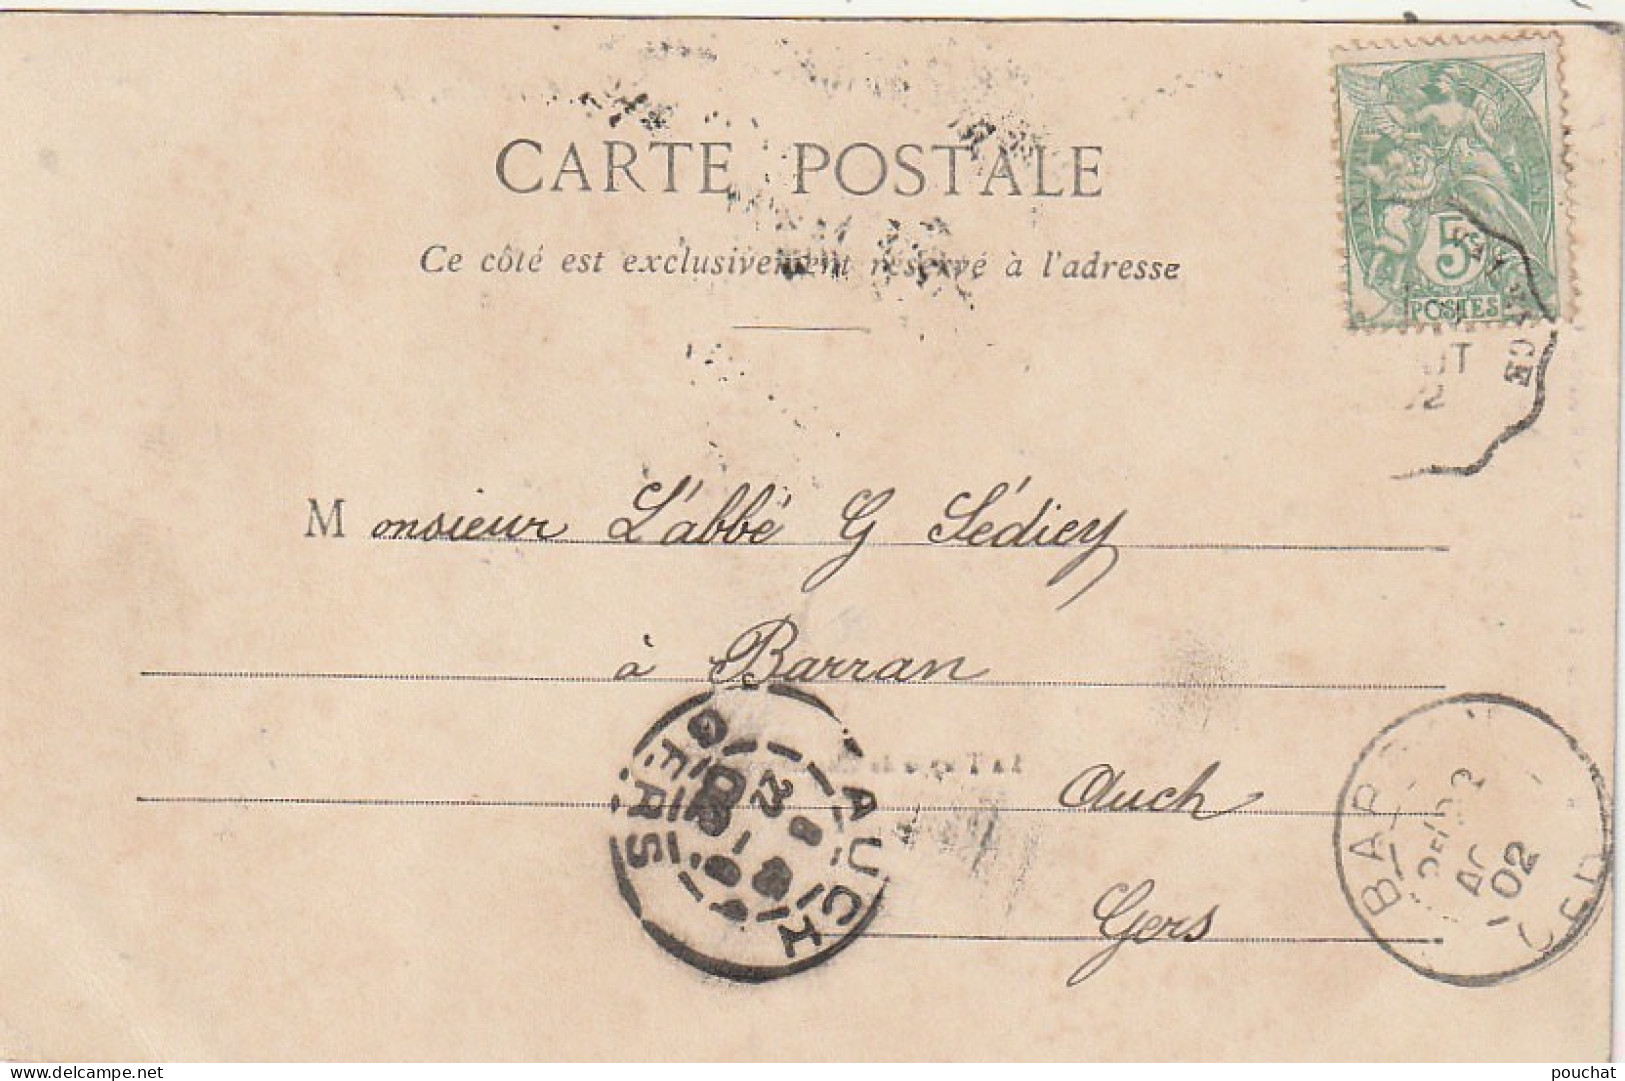 CARTE POSTALE
Ce côté est exclusivement réservé à l'adresse
5
POSTES
Monsieur L'abbé G Sédiey
à Barran
Auch
Gers
AUCH
GERS
22
8
02
BAR
02
GERS
pouchat